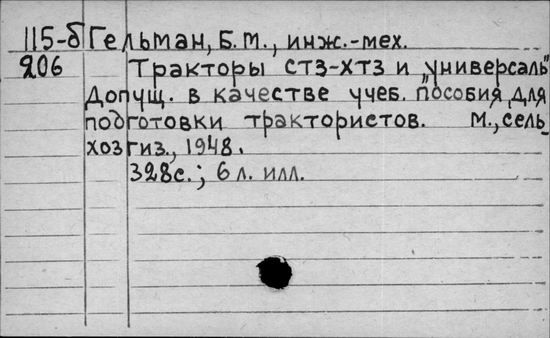 115-б Гельман, Б. М., инж.-мех.
206 Тракторы СТЗ-ХТЗ и „универсаль"
Допущ. в качестве учеб. пособия для
подготовки трактористов. М., сель-
хозгиз., 1948.
328с.; 6 л. илл.